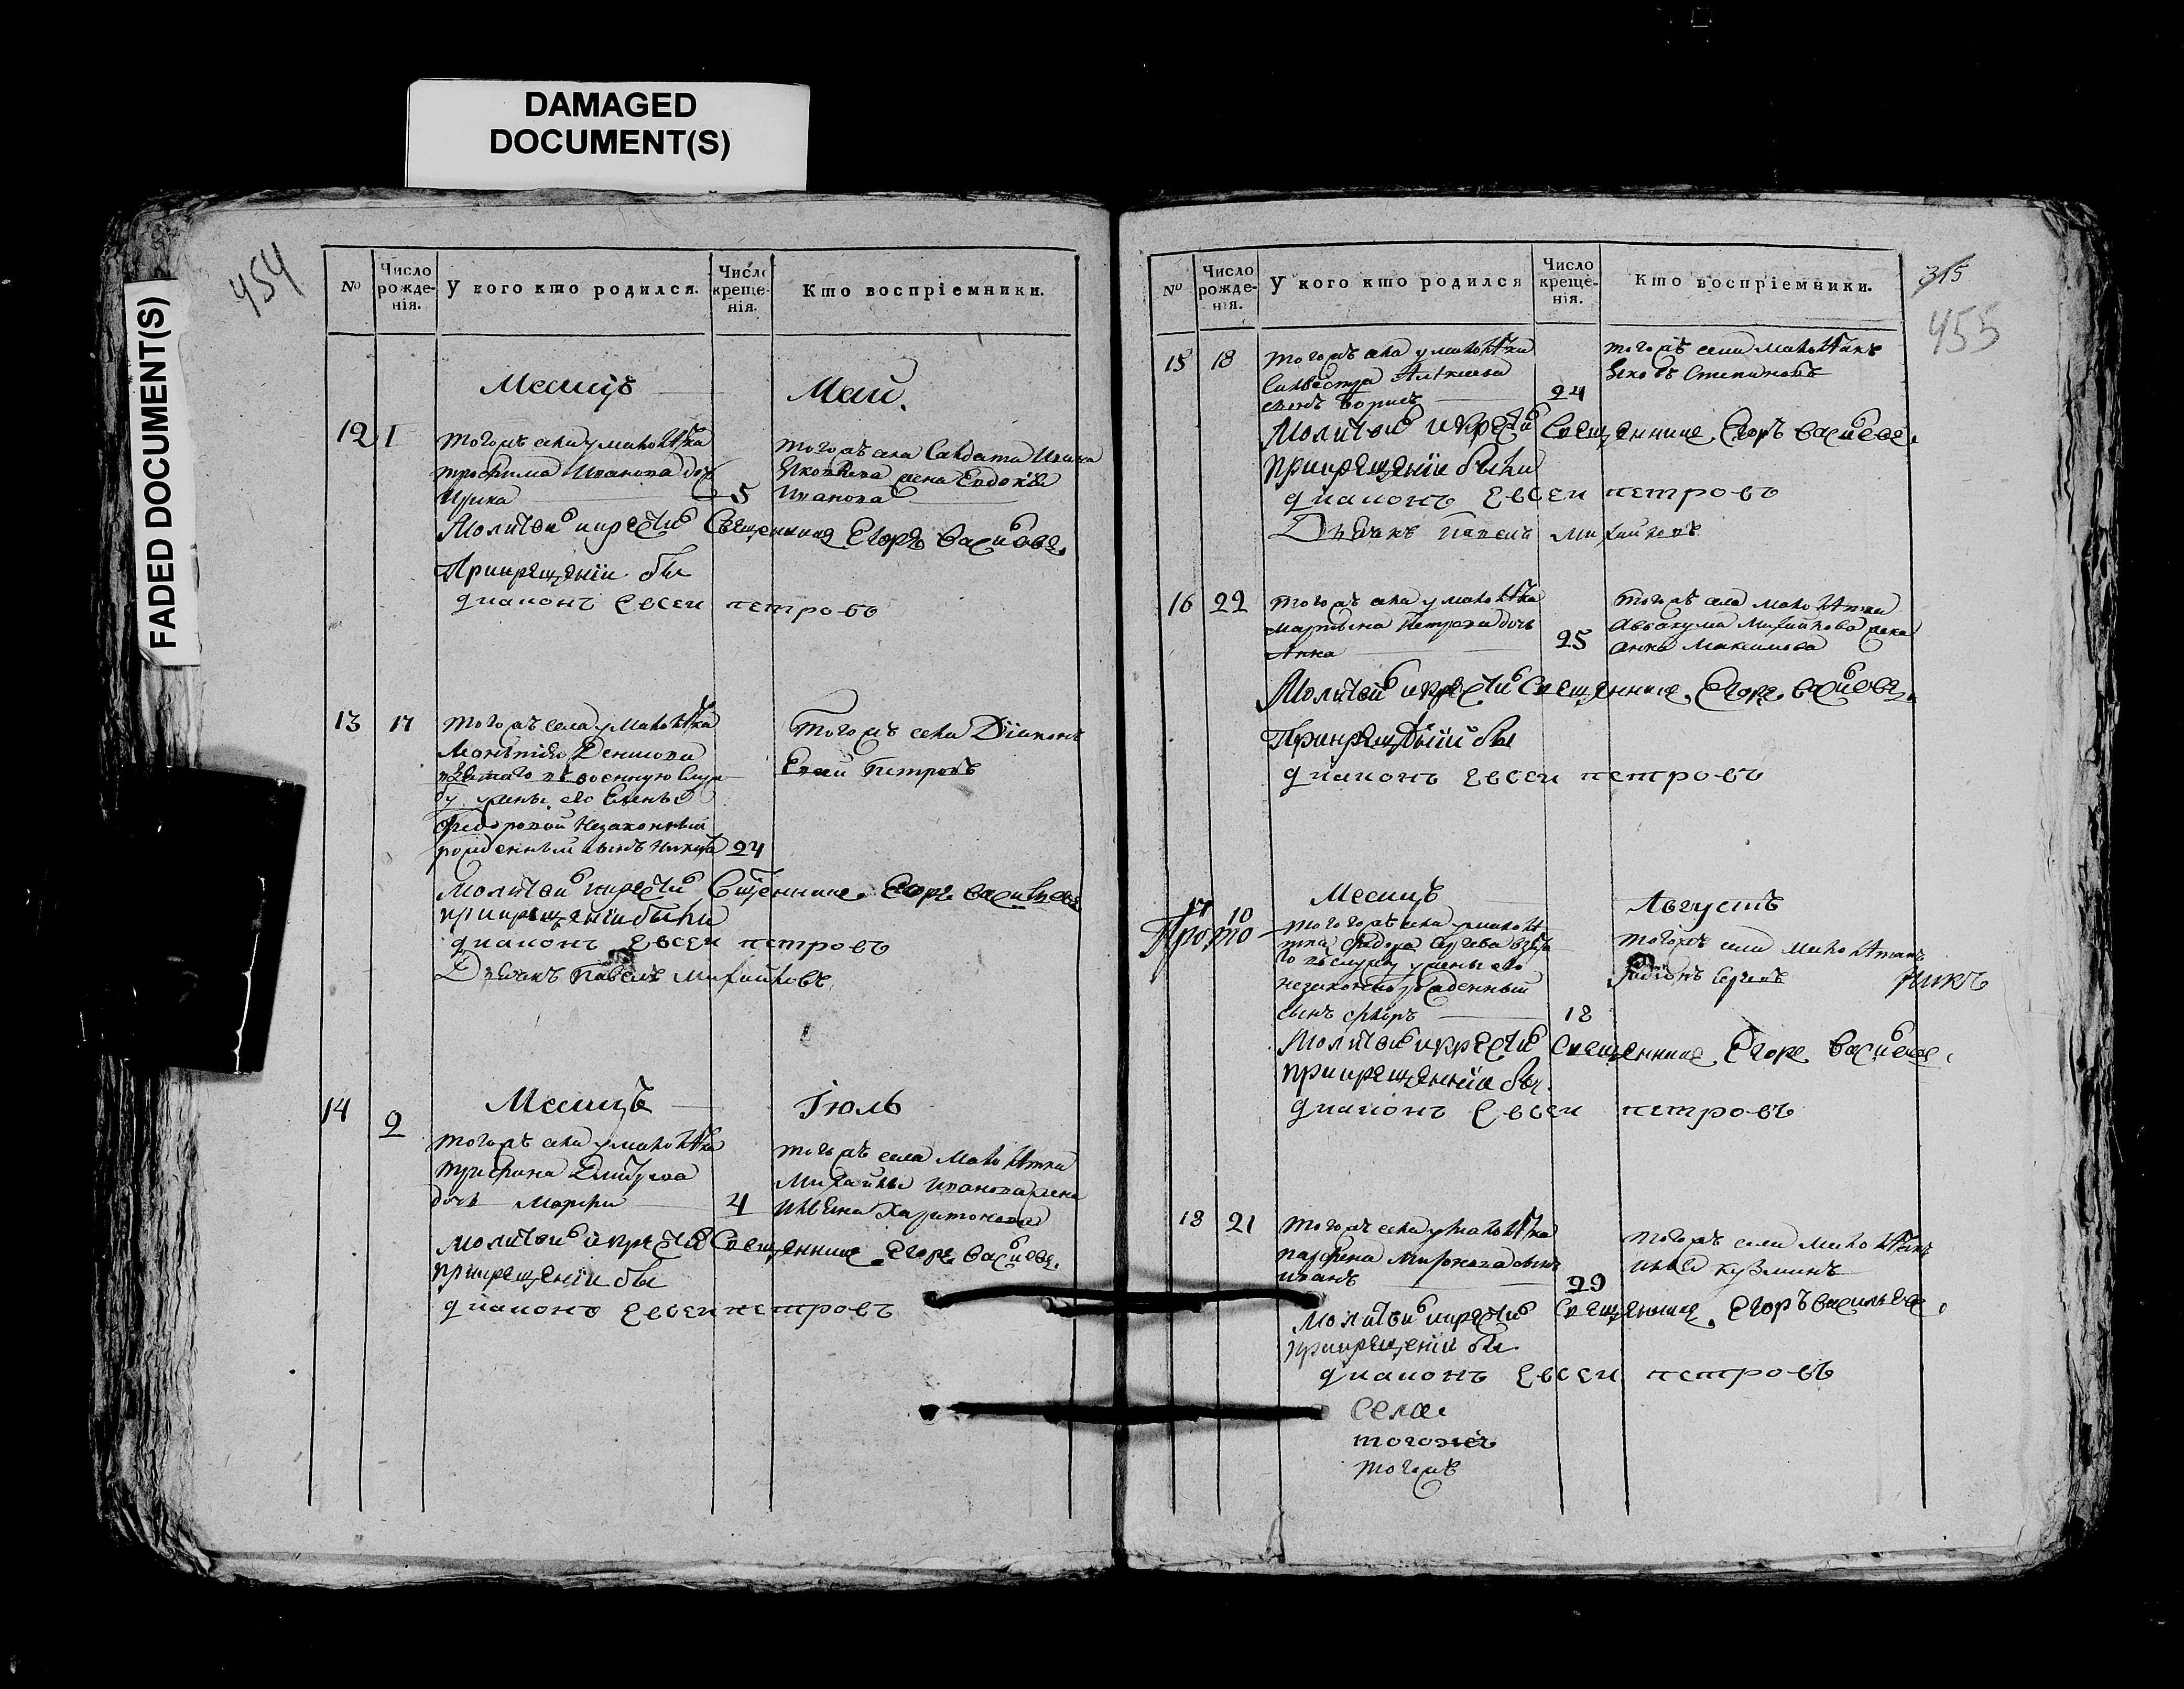 DAMAGED
DOCUMENT(S)
FADED DOCUMENT(S)
454
№
Число рожденія.
У кого кто родился.
Число крещенія.
Кто воспріемники.
Месяцъ Маи.
12 1
тогожъ села у малолѣтка
трофима Иванова дочь
Ирина 5
тогожъ села Салдата
жена Евдокія
Иванова
Молитвилъ и крестилъ Священникъ Егоръ Васильевъ
При крещеніи былъ
диаконъ Евсеи петровъ
13 17
тогожъ села у малолѣтка
Денисова
взятаго въ военную служ
бу жены его Елены
Федоровой Незаконный
рожденный сынъ Никита 24
тогожъ села Діяконъ
Евсей Петровъ
Молитвилъ и крестилъ Священникъ Егоръ Васильевъ
при крещеніи были
диаконъ Евсеи петровъ
Дьячекъ Павелъ Михайловъ
Месяцъ Іюль
14 2
тогожъ села у малолѣтка
трифона
дочь Марфа 4
тогожъ села малолѣтка
Михайлы Иванова жена
Харитонова
Молитвилъ и крестилъ Священникъ Егоръ Васильевъ
при крещеніи былъ
диаконъ Евсеи петровъ
315
455
№
Число рожденія.
У кого кто родился
Число крещенія.
Кто воспріемники.
15 18
тогожъ села у малолѣтка
Силвестра Алексеева
сынъ Борисъ 24
тогожъ села малолѣтокъ
Яковъ Степановъ
Молитвилъ и крестилъ Священникъ Егоръ Васильевъ
при крещеніи были
диаконъ Евсеи петровъ
Дьячекъ Павелъ Михайловъ
16 22
тогожъ села у малолѣтка
мартына Петрова дочь
Анна 25
тогожъ села малолѣтка
Авакума Михайлова жена
анна Максимова
Молитвилъ и крестилъ Священникъ Егоръ Васильевъ
При крещеніи былъ
диаконъ Евсеи петровъ
Месяцъ Августъ
17 10
Прото
тогожъ села у малолѣ
тка взята
го въ службу у жены его
незаконнорожденный
сынъ 18
тогожъ села малолѣтокъ
Родіонъ Сергеевъ
никъ
Молитвилъ и крестилъ Священникъ Егоръ Васильевъ
при крещеніи былъ
диаконъ Евсеи петровъ
18 21
тогожъ села у малолѣтка
парфена Миронова сынъ
иванъ 29
тогожъ села малолѣтокъ
илья кузминъ
Молитвилъ и крестилъ Священникъ Егоръ Васильевъ
при крещеніи былъ
диаконъ Евсеи петровъ
села
тогожъ
тогожъ